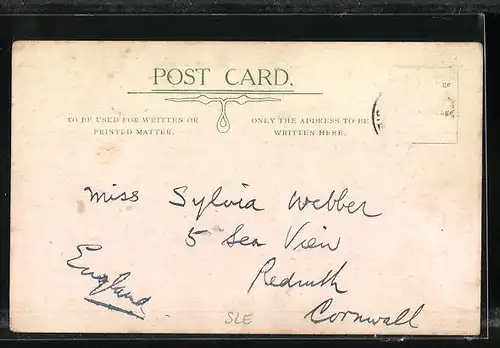 POST CARD.
TO BE USED FOR WRITTEN OR
PRINTED MATTER.
ONLY THE ADDRESS TO BE
WRITTEN HERE.
Miss Sylvia Webber
5 Sea View
Redruth
Cornwall
England
SLE